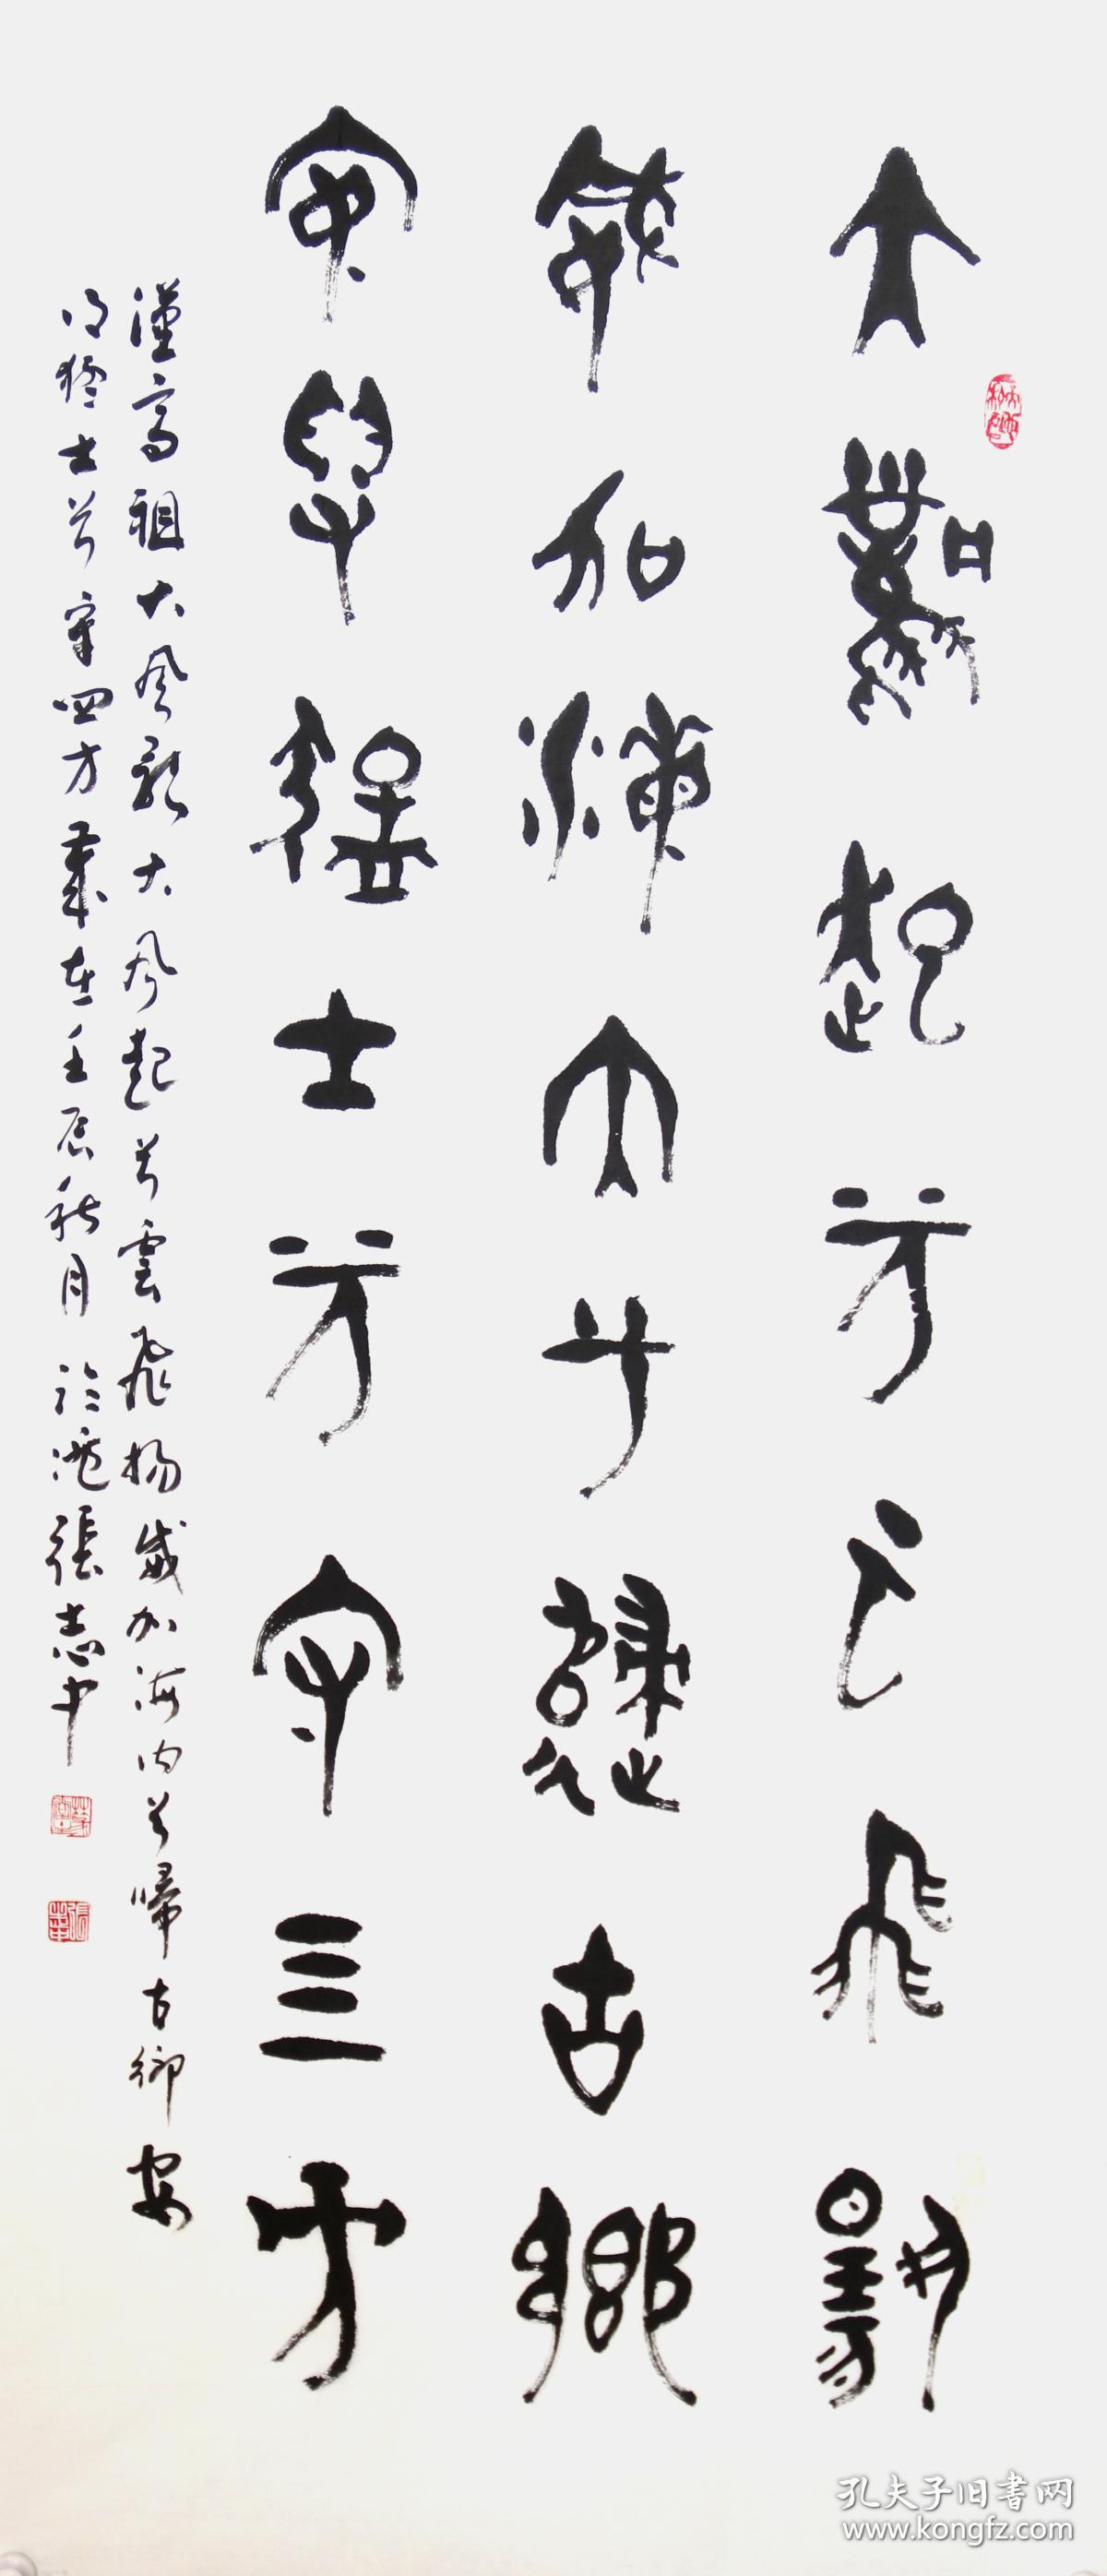 大風起兮云飛揚
威加海内兮歸古鄉
安得猛士兮守三方
漢高祖大風歌大風起兮雲飛揚威加海内兮歸古鄉安
得猛士兮守四方歲在壬辰秋月於滬張志中
孔夫子旧书网
www.kongfz.com